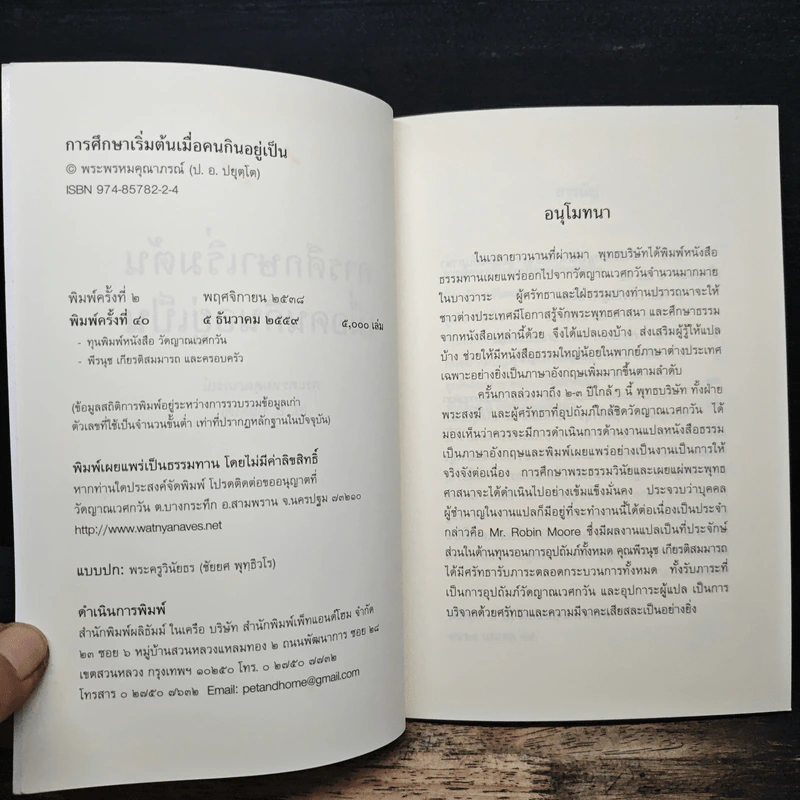 การศึกษาเริ่มต้นเมื่อคนกินอยู่เป็น
© พระพรหมคุณาภรณ์ (ป. อ. ปยุตฺโต)
ISBN 974-85782-2-4
พิมพ์ครั้งที่ ๒ พฤศจิกายน ๒๕๓๘
พิมพ์ครั้งที่ ๔๐ ๕ ธันวาคม ๒๕๕๙ ๕,๐๐๐ เล่ม
- ทุนพิมพ์หนังสือ วัดญาณเวศกวัน
- พีรนุช เกียรติสมมารถ และครอบครัว
(ข้อมูลสถิติการพิมพ์อยู่ระหว่างการรวบรวมข้อมูลเก่า
ตัวเลขที่ใช้เป็นจำนวนขั้นต่ำ เท่าที่ปรากฏหลักฐานในปัจจุบัน)
พิมพ์เผยแพร่เป็นธรรมทาน โดยไม่มีค่าลิขสิทธิ์
หากท่านใดประสงค์จัดพิมพ์ โปรดติดต่อขออนุญาตที่
วัดญาณเวศกวัน ต.บางกระทึก อ.สามพราน จ.นครปฐม ๗๓๒๑๐
http://www.watnyanaves.net
แบบปก: พระครูวินัยธร (ชัยยศ พุทฺธิวโร)
ดำเนินการพิมพ์
สำนักพิมพ์ผลิธัมม์ ในเครือ บริษัท สำนักพิมพ์เพ็ทแอนด์โฮม จำกัด
๒๓ ซอย ๖ หมู่บ้านสวนหลวงแหลมทอง ๒ ถนนพัฒนาการ ซอย ๒๘
เขตสวนหลวง กรุงเทพฯ ๑๐๒๕๐ โทร. ๐ ๒๗๕๐ ๗๗๓๒
โทรสาร ๐ ๒๗๕๐ ๗๖๓๒ Email: petandhome@gmail.com
อนุโมทนา
ในเวลายาวนานที่ผ่านมา พุทธบริษัทได้พิมพ์หนังสือ
ธรรมทานเผยแพร่ออกไปจากวัดญาณเวศกวันจำนวนมากมาย
ในบางวาระ ผู้ศรัทธาและใฝ่ธรรมบางท่านปรารถนาจะให้
ชาวต่างประเทศมีโอกาสรู้จักพระพุทธศาสนา และศึกษาธรรม
จากหนังสือเหล่านี้ด้วย จึงได้แปลเองบ้าง ส่งเสริมผู้รู้ให้แปล
บ้าง ช่วยให้มีหนังสือธรรมใหญ่น้อยในพากย์ภาษาต่างประเทศ
เฉพาะอย่างยิ่งเป็นภาษาอังกฤษเพิ่มมากขึ้นตามลำดับ
ครั้นกาลล่วงมาถึง ๒-๓ ปีใกล้ๆ นี้ พุทธบริษัท ทั้งฝ่าย
พระสงฆ์ และผู้ศรัทธาที่อุปถัมภ์ใกล้ชิดวัดญาณเวศกวัน ได้
มองเห็นว่าควรจะมีการดำเนินการด้านงานแปลหนังสือธรรม
เป็นภาษาอังกฤษและพิมพ์เผยแพร่อย่างเป็นงานเป็นการให้
จริงจังต่อเนื่อง การศึกษาพระธรรมวินัยและเผยแผ่พระพุทธ
ศาสนาจะได้ดำเนินไปอย่างเข้มแข็งมั่นคง ประจวบว่าบุคคล
ผู้ชำนาญในงานแปลก็มีอยู่ที่จะทำงานนี้ได้ต่อเนื่องเป็นประจำ
กล่าวคือ Mr. Robin Moore ซึ่งมีผลงานแปลเป็นที่ประจักษ์
ส่วนในด้านทุนรอนการอุปถัมภ์ทั้งหมด คุณพีรนุช เกียรติสมมารถ
ได้มีศรัทธารับภาระตลอดกระบวนการทั้งหมด ทั้งรับภาระที่
เป็นการอุปถัมภ์วัดญาณเวศกวัน และอุปการะผู้แปล เป็นการ
บริจาคด้วยศรัทธาและความมีจาคะเสียสละเป็นอย่างยิ่ง